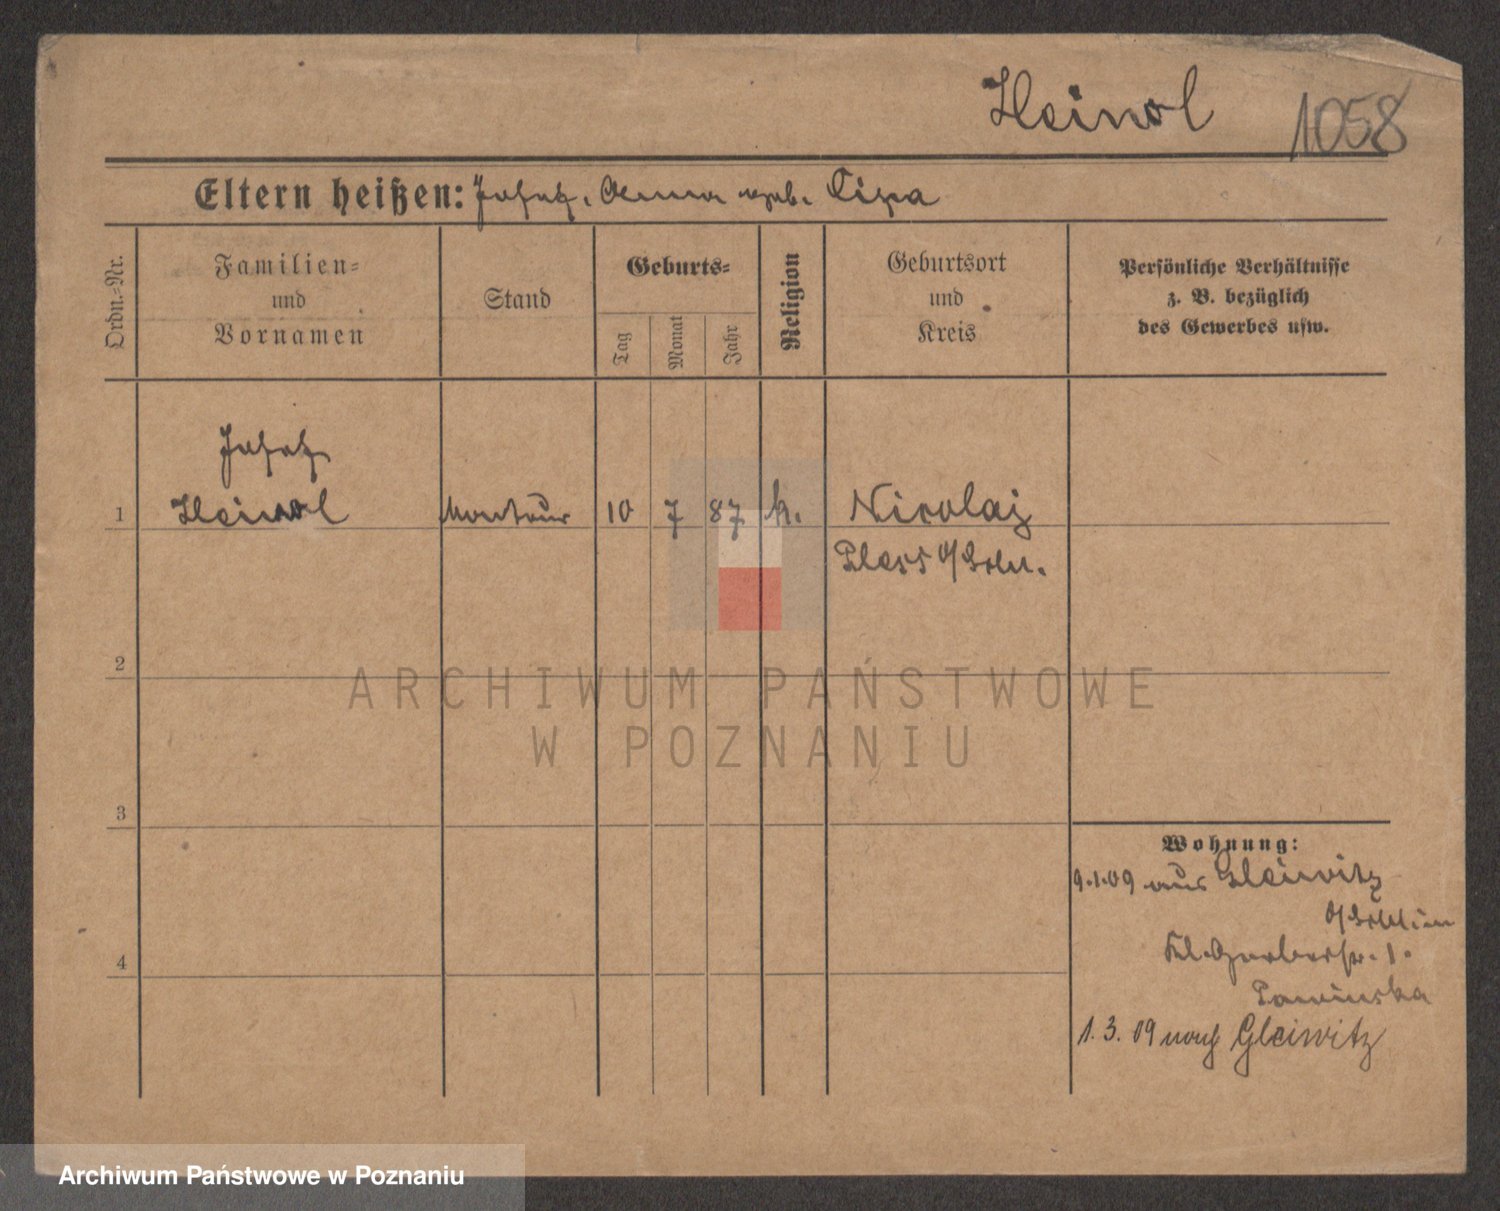 Heinol 1058
Eltern heißen: Josef, Anna geb. Cipa
Ordn.-Nr.
Familien-
und
Vornamen
Stand
Geburts-
Tag
Monat
Jahr
Religion
Geburtsort
und
Kreis
Persönliche Verhältnisse
z. B. bezüglich
des Gewerbes usw.
Josef
1 Heinol Monteur 10 7 87 k. Nicolai
Pless o/Schl.
2
ARCHIWUM PAŃSTWOWE
W POZNANIU
3
Wohnung:
9.1.09 aus Gleiwitz
o/Schlesien
4
Kl. Gerberstr. 1.
1. 3. 09 nach Gleiwitz
Archiwum Państwowe w Poznaniu